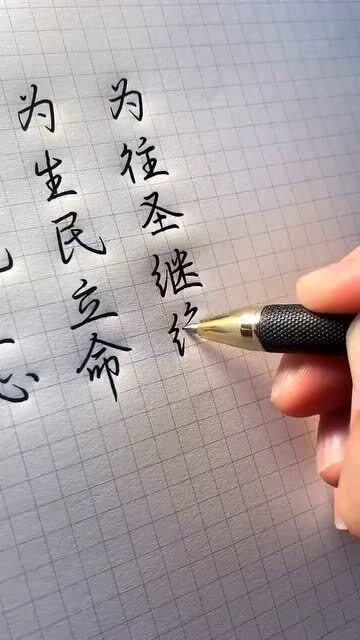 心
为生民立命
为往圣继